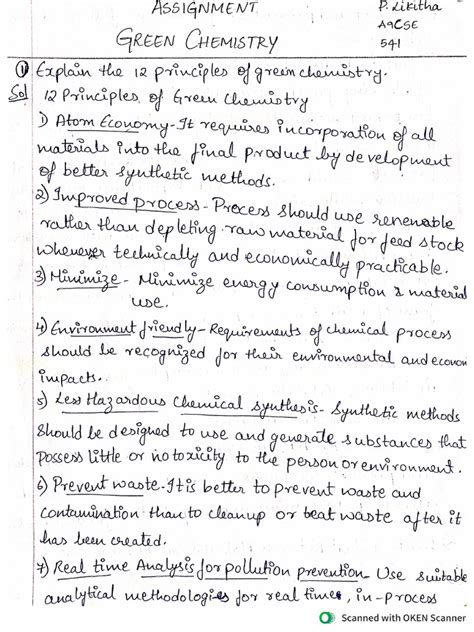 ASSIGNMENT
P. Likitha
A9CSE
541
GREEN CHEMISTRY
1) Explain the 12 principles of green chemistry.
Sol 12 Principles of Green Chemistry
1) Atom Economy - It requires incorporation of all
materials into the final product by development
of better synthetic methods.
2) Improved process - Process should use renewable
rather than depleting raw material for feed stock
whenever technically and economically practicable.
3) Minimize - Minimize energy consumption & material
use.
4) Environment friendly - Requirements of chemical process
should be recognized for their environmental and econom
impacts.
5) Less Hazardous Chemical synthesis - Synthetic methods
should be designed to use and generate substances that
possess little or no toxicity to the person or environment.
6) Prevent waste - It is better to prevent waste and
contamination than to cleanup or treat waste after it
has been created.
7) Real time Analysis for pollution prevention - Use suitable
analytical methodologies for real time, in-process
Scanned with OKEN Scanner